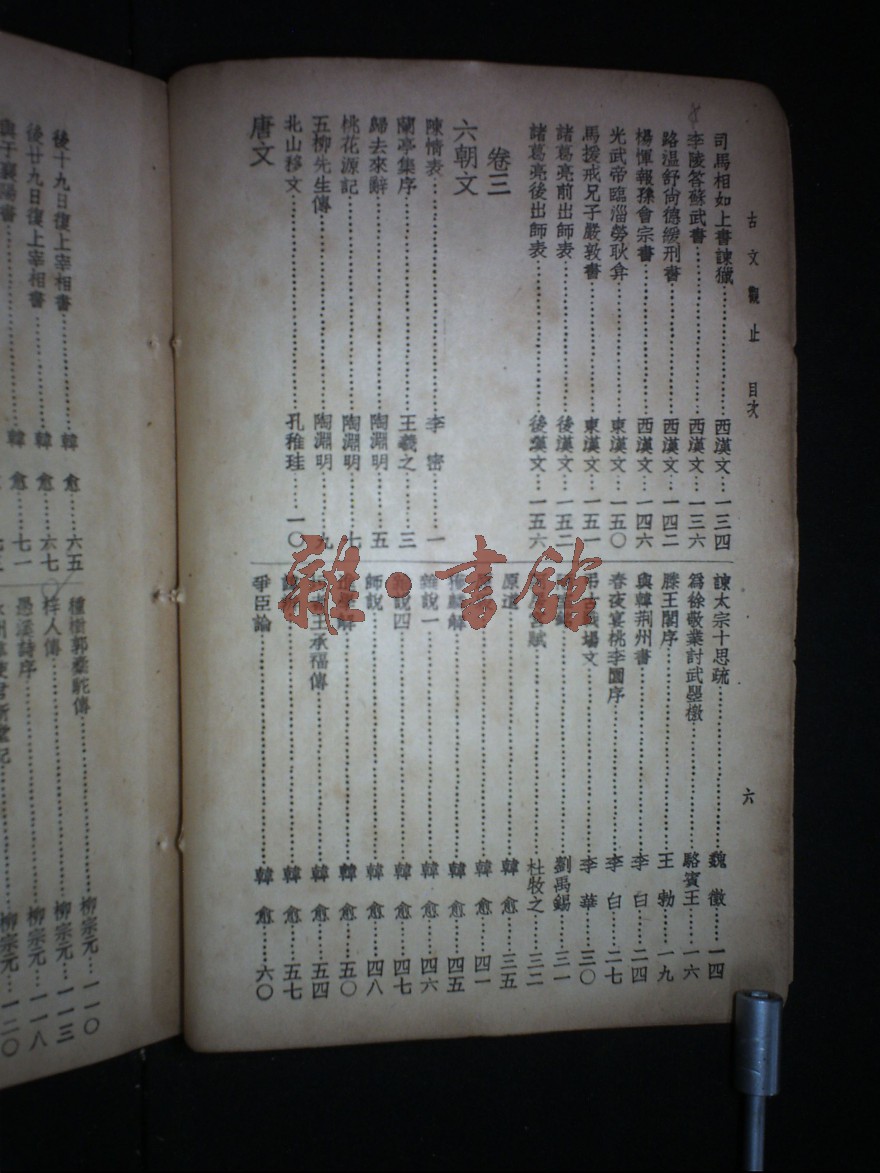 古文觀止 目次 六
司馬相如上書諫獵 西漢文 一三四
李陵答蘇武書 西漢文 一三六
路温舒尚德緩刑書 西漢文 一四二
楊惲報孫會宗書 西漢文 一四六
光武帝臨淄勞耿弇 東漢文 一五〇
馬援戒兄子嚴敦書 東漢文 一五一
諸葛亮前出師表 後漢文 一五二
諸葛亮後出師表 後漢文 一五六
卷三
六朝文
陳情表 李密 一
蘭亭集序 王羲之 三
歸去來辭 陶淵明 五
桃花源記 陶淵明 七
五柳先生傳 陶淵明 九
北山移文 孔稚珪 一〇
唐文
諫太宗十思疏 魏徵 一四
爲徐敬業討武曌檄 駱賓王 一六
滕王閣序 王勃 一九
與韓荆州書 李白 二四
春夜宴桃李園序 李白 二七
弔古戰場文 李華 三〇
劉禹錫 三一
賦 杜牧之 三二
原道 韓愈 三五
韓愈 四一
獲麟解 韓愈 四五
雜說一 韓愈 四六
雜說四 韓愈 四七
師說 韓愈 四八
解 韓愈 五〇
王承福傳 韓愈 五四
韓愈 五七
爭臣論 韓愈 六〇
後十九日復上宰相書 韓愈 六五
後廿九日復上宰相書 韓愈 六七
與于襄陽書 韓愈 七一
種樹郭橐駝傳 柳宗元 一一〇
梓人傳 柳宗元 一一三
愚溪詩序 柳宗元 一一八
柳宗元 一二〇
雜·書館